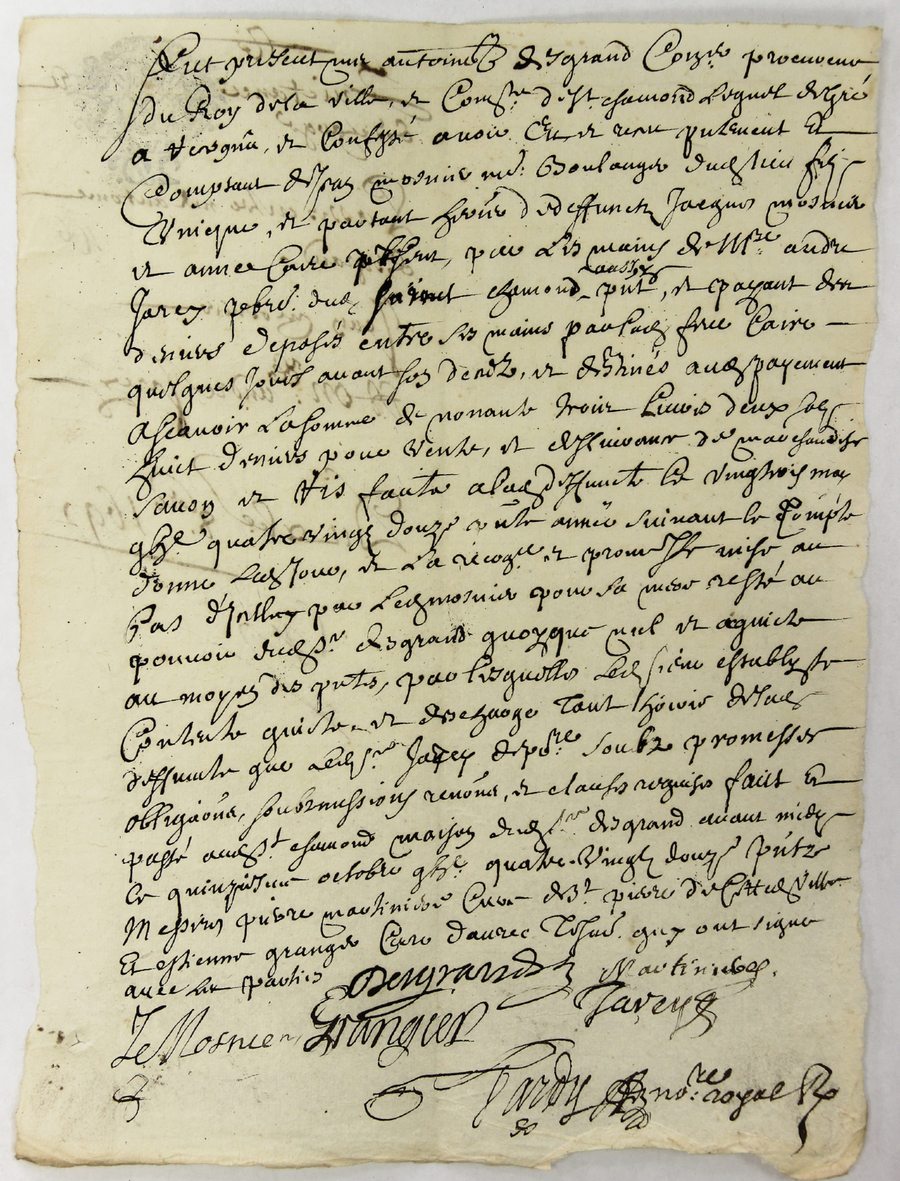 Fut present sieur antoine desgrand Coner procureur
du Roy de la ville, et Comté de St chamond Lequel de gré
a recognu, et Confessé avoir Eu et receu putement Et
Comptant de Jean mosnier me Boulanger dud lieu fils
Unique, et partant heoir de deffuncts Jacques mosnier
et annee Caire par les mains de Mre andre
Jarey pbre dud saint chamond aussy pnt, et payant des
deniers deposés entre ses mains par lad feue Caire
quelques jours avant son deced, et destinés aud payement
ascavoir La somme de nonante trois Livres deux sols
huict deniers pour vente, et deslivrance de marchandise
savon et ris faite a lad deffuncte le vingtrois may
gbc quatre vingt douze pnte année suivant le Compte
donné Led Jour, et La recogce et promesse mise au
bas d'jcelluy par Led mosnier pour sa mere resté au
pouvoir dud sr desgrand quoyque nul et aquicté
au moyen des pntes, par lesquelles Led sieur
Contente quicte et descharge tant heoirs de lad
deffuncte que Led sr Jarey depre soubz promesses
obligaons, soubzmissions renons, et clauses requises faict Et
passé aud St chamond maison dud sr desgrand avant midy
Le quinziesme octobre gbc quatre Vingt douze pntz
Messires pierre martinière Curé de St pierre de Cette Ville
Et estienne granger Curé daurec qui ont signé
avec les parties Desgrand Martiniere
Jarey
Je Mosnier Grangier
Tardy nore royal